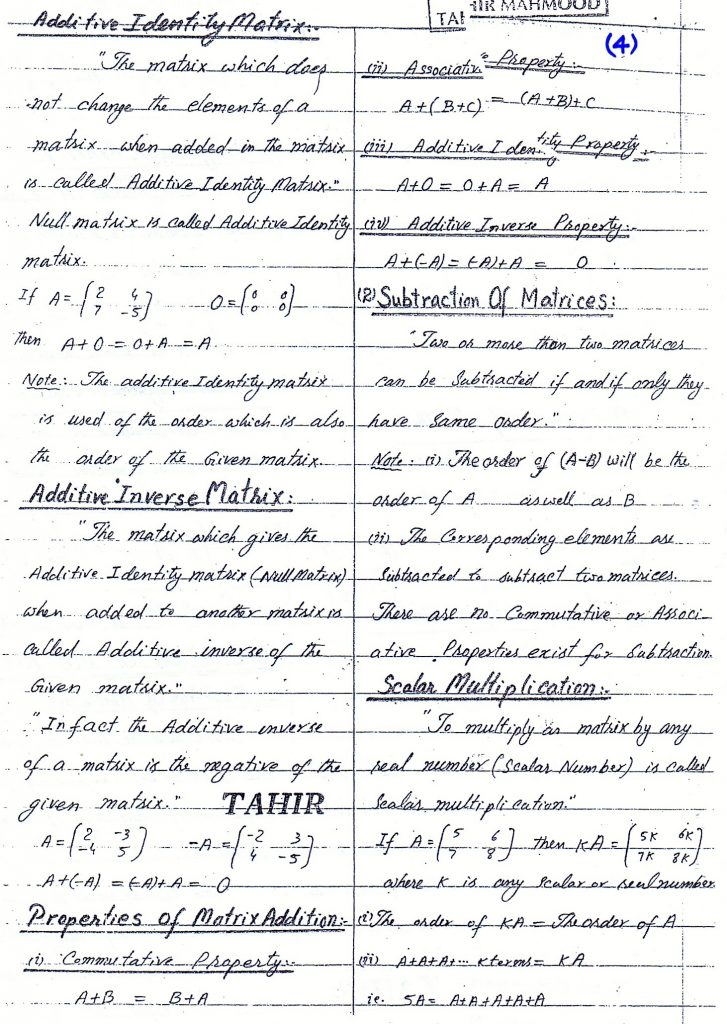 TAHIR MAHMOOD
(4)
Additive Identity Matrix:-
"The matrix which does
not change the elements of a
matrix when added in the matrix
is called Additive Identity Matrix."
Null matrix is called Additive Identity
matrix.
If A = [2 4
7 -5] O = [0 0
0 0]
Then A+O = O+A = A
Note: The additive Identity matrix
is used of the order which is also
the order of the Given matrix.
Additive Inverse Matrix:
"The matrix which gives the
Additive Identity matrix (Null Matrix)
when added to another matrix is
called Additive inverse of the
Given matrix."
"In fact the Additive inverse
of a matrix is the negative of the
given matrix." TAHIR
A = [2 -3
-4 5] -A = [-2 3
4 -5]
A+(-A) = (-A)+A = O
Properties of Matrix Addition:-
(i) Commutative Property:-
A+B = B+A
(ii) Associative Property:-
A+(B+C) = (A+B)+C
(iii) Additive Identity Property:-
A+O = O+A = A
(iv) Additive Inverse Property:-
A+(-A) = (-A)+A = O
(2) Subtraction Of Matrices:
"Two or more than two matrices
can be Subtracted if and if only they
have Same order."
Note: (i) The order of (A-B) will be the
order of A as well as B
(ii) The Corresponding elements are
Subtracted to subtract two matrices.
There are no Commutative or Associ-
ative Properties exist for Subtraction.
Scalar Multiplication:-
"To multiply a matrix by any
real number (Scalar Number) is called
Scalar multiplication."
If A = [5 6
7 8] then KA = [5K 6K
7K 8K]
where K is any scalar or real number
(i) The order of KA = The order of A
(ii) A+A+A+... K terms = KA
ie. 5A = A+A+A+A+A